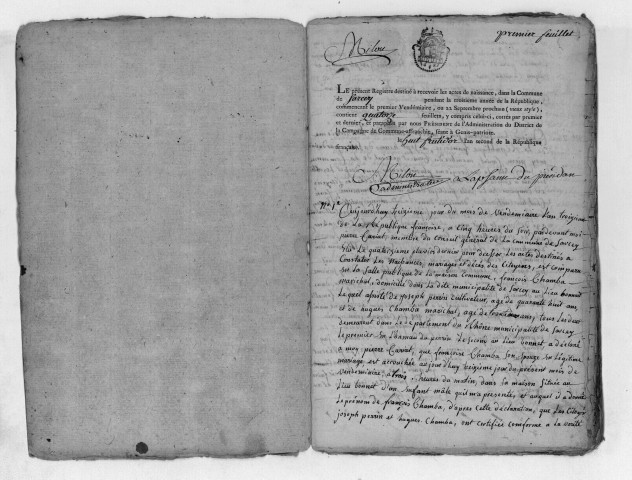 premier feuillet
Milon
LE présent Registre destiné à recevoir les actes de naissance, dans la Commune
de Sarcey pendant la troisième année de la République,
commençant le premier Vendémiaire, ou 22 Septembre prochain (vieux style),
contient quatorze feuillets, y compris celui-ci, cottés par premier
et dernier, et paraphés par nous Président de l'Administration du District de
la Campagne de Commune-affranchie, séante à Genis-patriote.
huit fructidor l'an second de la République
française.
Milon
administrateur
N° 1er Aujourd'huy seizieme jour du mois de Vendemiaire l'an troisieme
de la République françoise, à cinq heures du soir, pardevant moi
pierre membre du conseil général de la commune de Sarcey
élu le dernier pour dresser les actes destinés à
Constater les Naissances, mariages et décès des Citoyens, est comparu
en la Salle publique de la maison commune, françois Chamba
marechal, domicilié dans la dite municipalité de Sarcey au lieu bonnet
Lequel assisté de joseph perrin cultivateur, agé de quarante huit ans,
et de hugues Chamba marechal, agé de ans, tous les deux
demeurant dans le département du Rhône municipalité de Sarcey,
le premier au hameau du perrin le second au lieu bonnet a déclaré
à moy pierre que françoise Chamba son épouse en légitime
mariage est accouchée aujourd'huy seizieme jour du présent mois de
vendemiaire, à trois heures du matin, dans la maison située au
lieu bonnet d'un enfant mâle qu'il m'a présenté, et auquel il a donné
le prénom de françois Chamba, d'après cette déclaration, que les Citoyens
joseph perrin et hugues Chamba, ont certifiée conforme à la verité